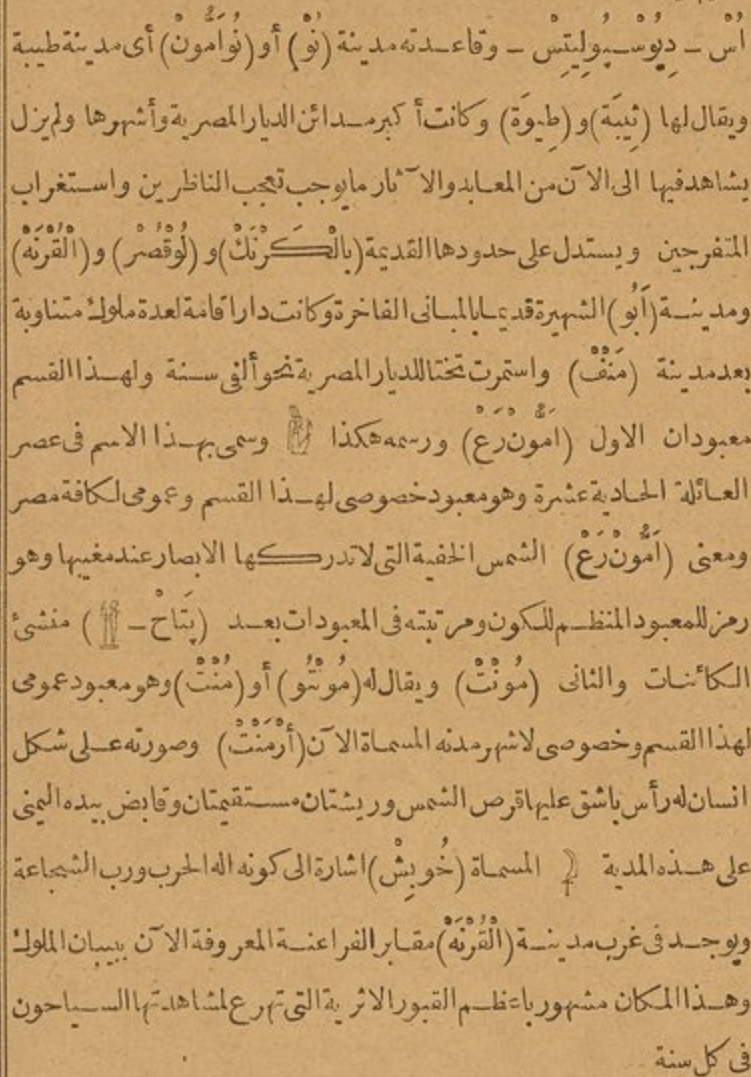 اُسْ - دِيُوسْـبُولِيتِسْ - وقاعـدته مدينة (نُوْ) أو (نُوَأَمُّونْ) أى مدينة طيبة
ويقال لها (ثِيبَة) و (طِيوَة) وكانت أكبر مـدائن الديار المصرية وأشهرها ولم يزل
يشاهد فيها الى الآن من المعابد والآثار ما يوجب تعجب الناظرين واستغراب
المتفرجين ويستدل على حدودها القديمة (بالْكَرْنَكْ) و (لُوقْصُرْ) و (الْقُرْنَهْ)
ومدينـة (آبُو) الشهيرة قديما بالمبانى الفاخرة وكانت دار اقامة لعدة ملوك متناوبة
بعد مدينة (مَنْفْ) واستمرت تختا للديار المصرية نحو ألفى سـنة ولهـذا القسم
معبودان الاول (اَمُّونْ رَعْ) ورسمه هكذا وسمى بهـذا الاسم فى عصر
العـائلة الحادية عشرة وهو معبود خصوصى لهـذا القسم وعمومى لكافة مصر
ومعنى (اَمُّونْ رَعْ) الشمس الخفية التى لا تدركها الابصار عند مغيبها وهو
رمز للمعبود المنظـم للكون ومرتبته فى المعبودات بعـد (بِتَاحْ - ) منشئ
الكائنات والثانى (مُونْتْ) ويقال له (مُونْتُو) أو (مُنْتْ) وهو معبود عمومى
لهذا القسم وخصوصى لاشهر مدنه المسماة الآن (أَرْمَنْتْ) وصورته عـلى شكل
انسان له رأس باشق عليها قرص الشمس وريشتان مسـتقيمتان وقابض بيده اليمنى
على هـذه المدية المسماة (خُوبِشْ) اشارة الى كونه اله الحرب ورب الشجاعة
ويوجـد فى غرب مدينـة (الْقُرْنَهْ) مقـابر الفراعنـة المعروفة الآن ببيبان الملوك
وهـذا المكان مشهور باعظـم القبور الاثرية التى تهرع لمشاهدتها السـياحون
فى كل سنة